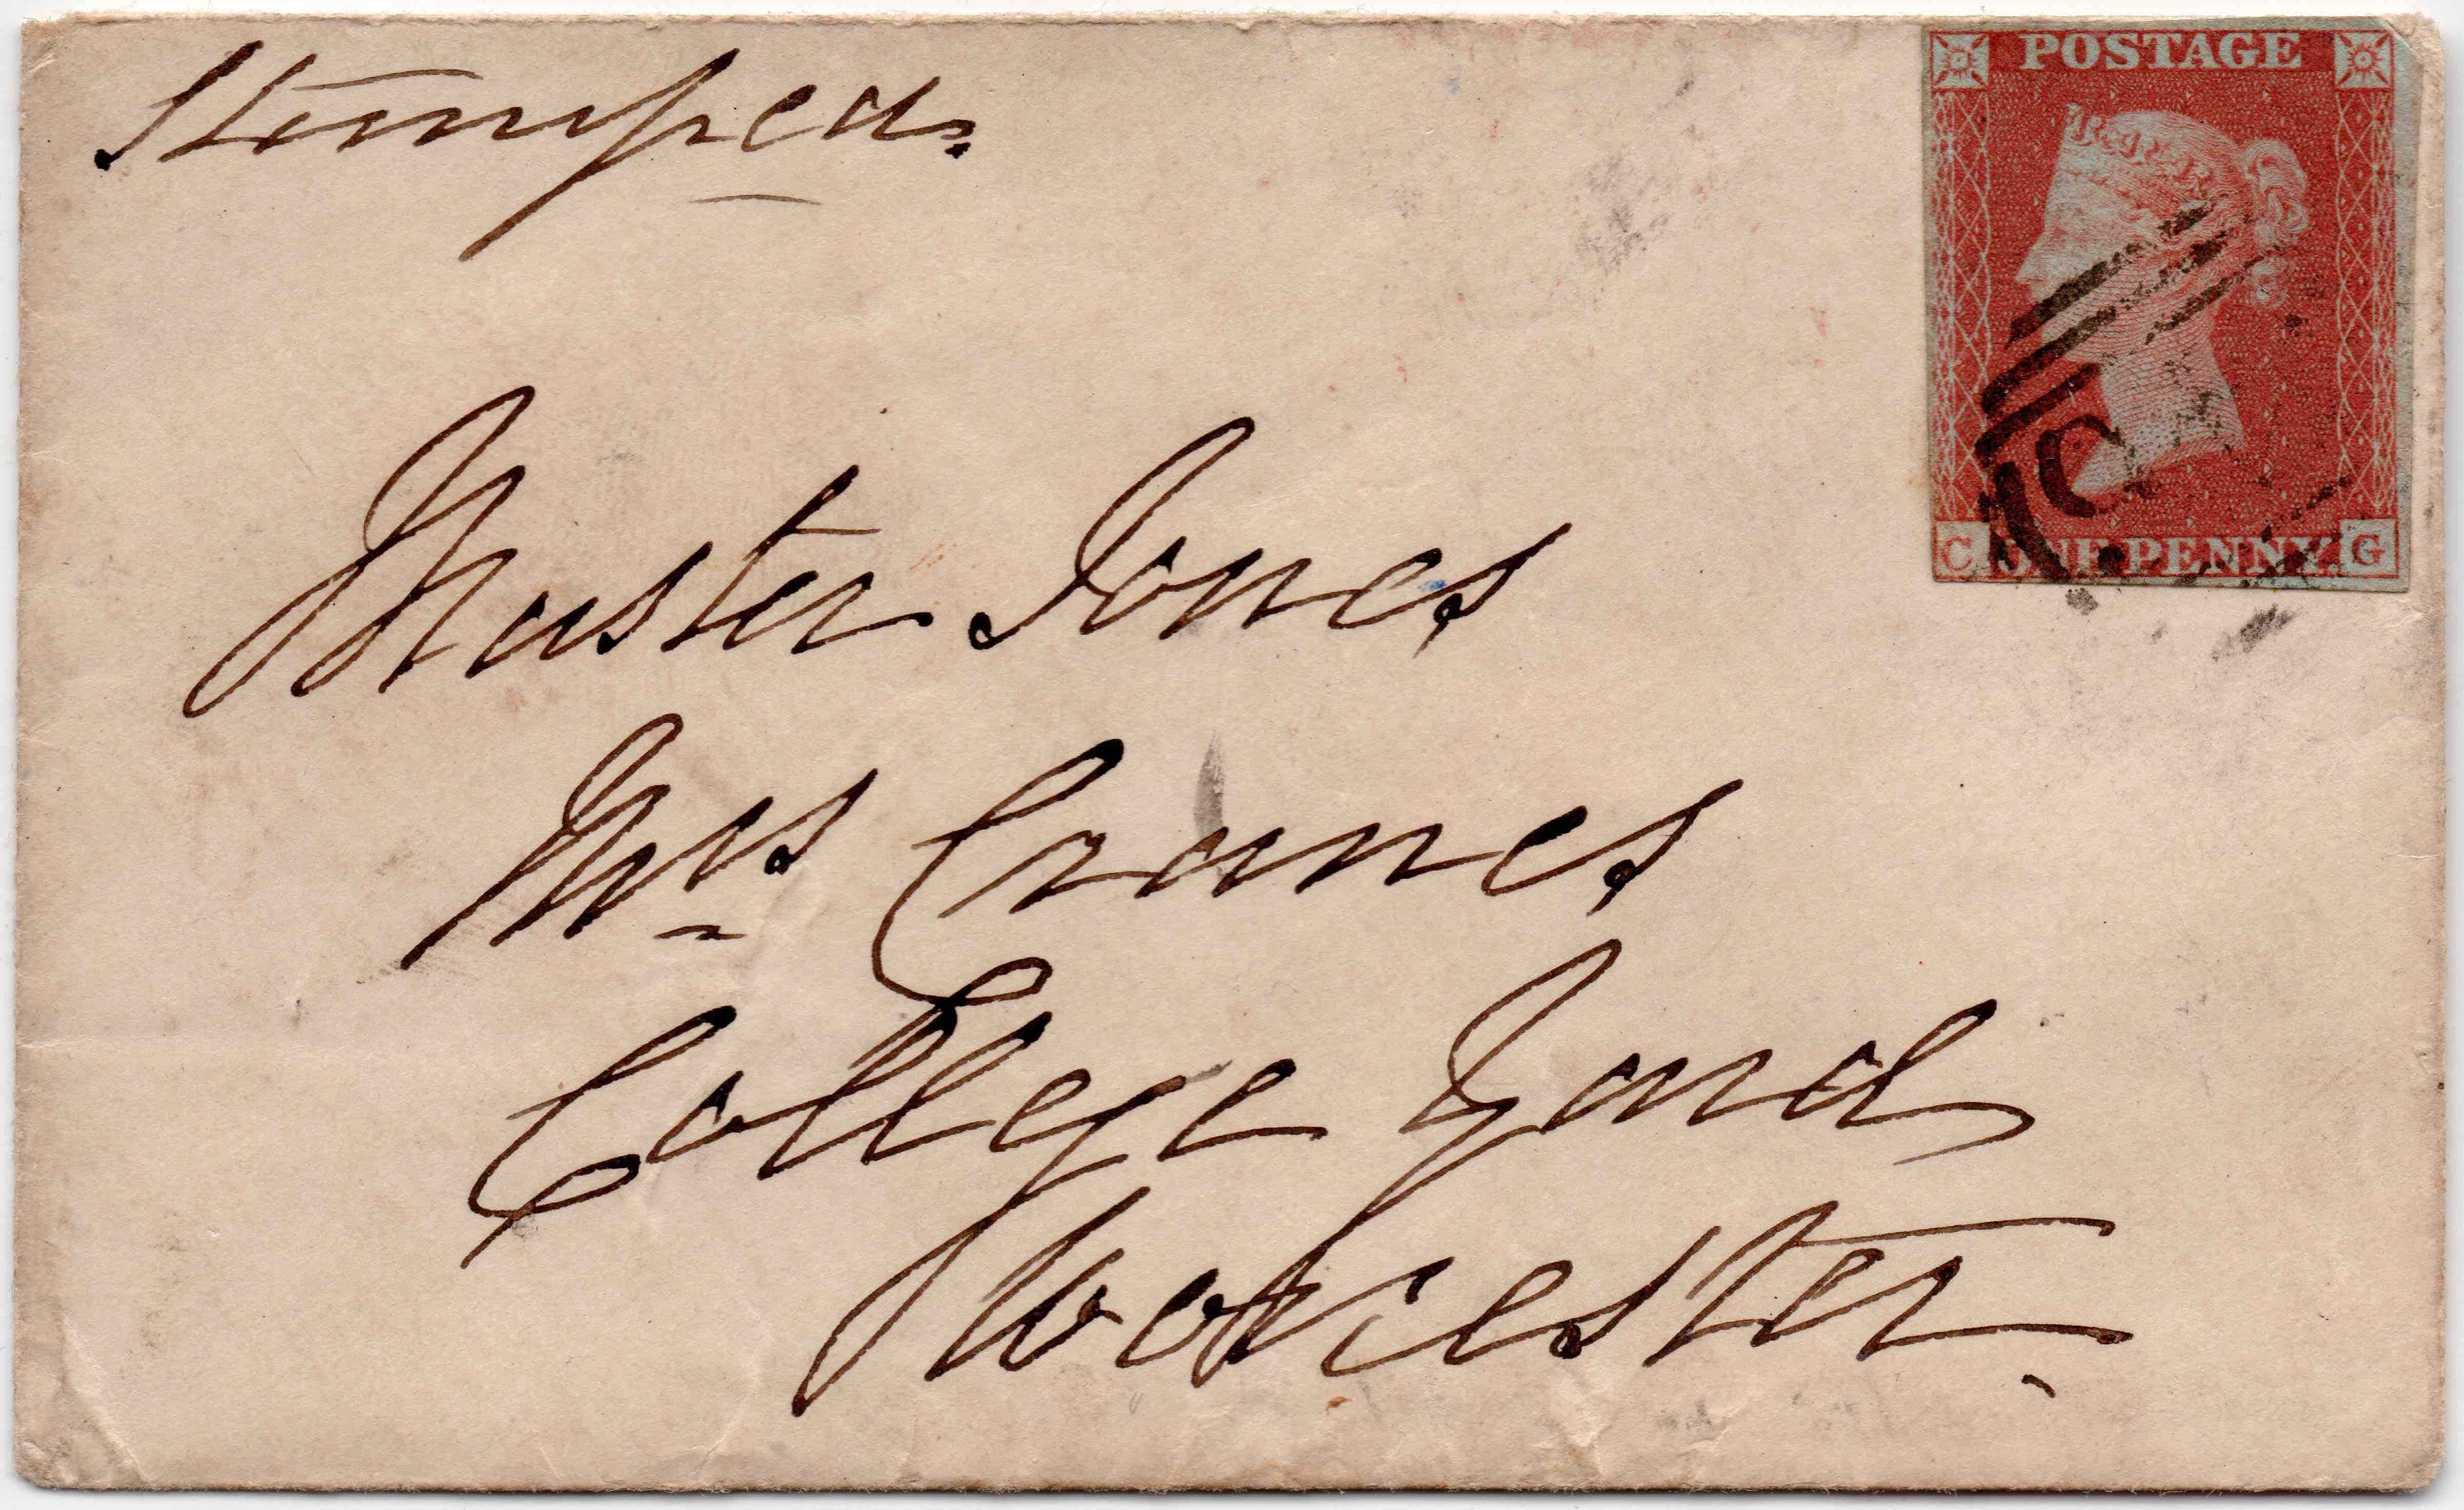 Stamped.
POSTAGE
C ONE PENNY. G
Master Jones
Mrs Cranes
College Yard
Worcester